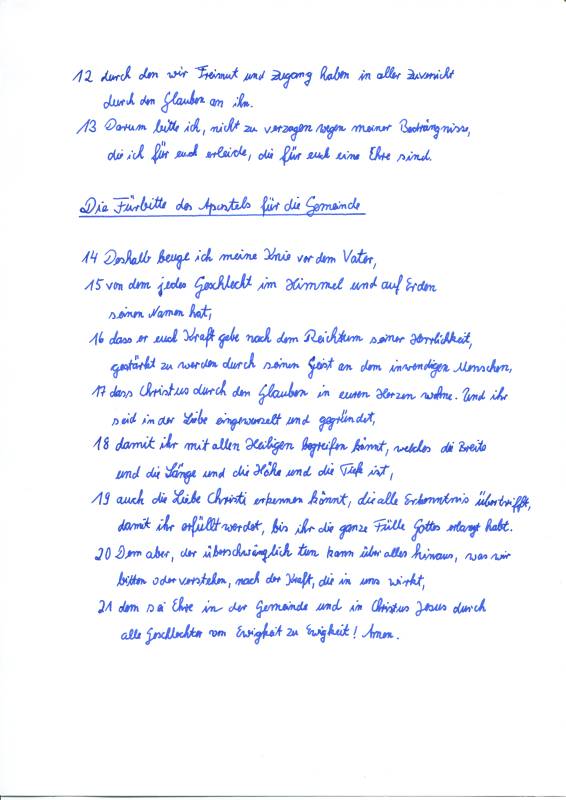 12 durch den wir Freimut und Zugang haben in aller Zuversicht
durch den Glauben an ihn.
13 Darum bitte ich, nicht zu verzagen wegen meiner Bedrängnisse,
die ich für euch erleide, die für euch eine Ehre sind.
Die Fürbitte des Apostels für die Gemeinde
14 Deshalb beuge ich meine Knie vor dem Vater,
15 von dem jedes Geschlecht im Himmel und auf Erden
seinen Namen hat,
16 dass er euch Kraft gebe nach dem Reichtum seiner Herrlichkeit,
gestärkt zu werden durch seinen Geist an dem inwendigen Menschen,
17 dass Christus durch den Glauben in euren Herzen wohne. Und ihr
seid in der Liebe eingewurzelt und gegründet,
18 damit ihr mit allen Heiligen begreifen könnt, welches die Breite
und die Länge und die Höhe und die Tiefe ist,
19 auch die Liebe Christi erkennen könnt, die alle Erkenntnis übertrifft,
damit ihr erfüllt werdet, bis ihr die ganze Fülle Gottes erlangt habt.
20 Dem aber, der überschwänglich tun kann über alles hinaus, was wir
bitten oder verstehen, nach der Kraft, die in uns wirkt,
21 dem sei Ehre in der Gemeinde und in Christus Jesus durch
alle Geschlechter von Ewigkeit zu Ewigkeit! Amen.